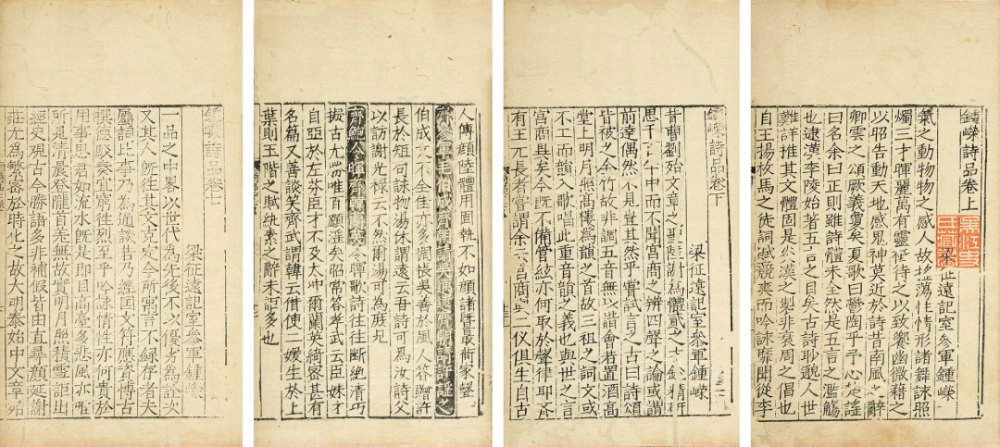 鍾嶸詩品卷上
梁征遠記室參軍鍾嶸
氣之動物物之感人故搖蕩性情形諸舞詠照
燭三才暉麗萬有靈祗待之以致饗幽微藉之
以昭告動天地感鬼神莫近於詩昔南風之辭
卿雲之頌厥義敻矣夏歌曰鬱陶乎予心楚謠
曰名余曰正則雖詩體未全然是五言之濫觴
也逮漢李陵始著五言之目矣古詩眇邈人世
難詳推其文體固是炎漢之製非衰周之倡也
自王揚枚馬之徒詞賦競爽而吟詠靡聞從李
鍾嶸詩品卷下
梁征遠記室參軍鍾嶸
昔曹劉殆文章之聖陸謝為體貳之才銳精研
思千百年中而不聞宮商之辨四聲之論或謂
前達偶然不見豈其然乎嘗試言之古曰詩頌
皆被之金竹故非調五音無以諧會若置酒高
堂上明月照高樓為韻之首故三祖之詞文或
不工而韻入歌唱此重音韻之義也與世之言
宮商異矣今既不備管絃亦何取於聲律耶齊
有王元長者嘗謂余云宮商與二儀俱生自古
人傳顏陸體用固執不如顏諸暨最荷家聲
伯成文不全佳亦多惆悵吳善於風人答贈許
長於短句詠物湯休謂遠云吾詩可為汝詩父
以訪謝光祿云不然爾湯可為庶兄
齊鮑令暉齊韓蘭英令暉歌詩往往斷絕清巧
擬古尤勝唯百願淫矣昭嘗答孝武云臣妹才
自亞於左芬臣才不及太沖爾蘭英綺密甚有
名篇又善談笑齊武謂韓云借使二媛生於上
葉則玉階之賦紈素之辭未詎多也
鍾嶸詩品卷中
梁征遠記室參軍鍾嶸
一品之中略以世代為先後不以優劣為詮次
又其人既往其文克定今所寓言不錄存者夫
屬詞比事乃為通談若乃經國文符應資博古
撰德駁奏宜窮往烈至乎吟詠情性亦何貴於
用事思君如流水既是即目高臺多悲風亦惟
所見清晨登隴首羌無故實明月照積雪詎出
經史觀古今勝語多非補假皆由直尋顏延謝
莊尤為繁密於時化之故大明泰始中文章殆